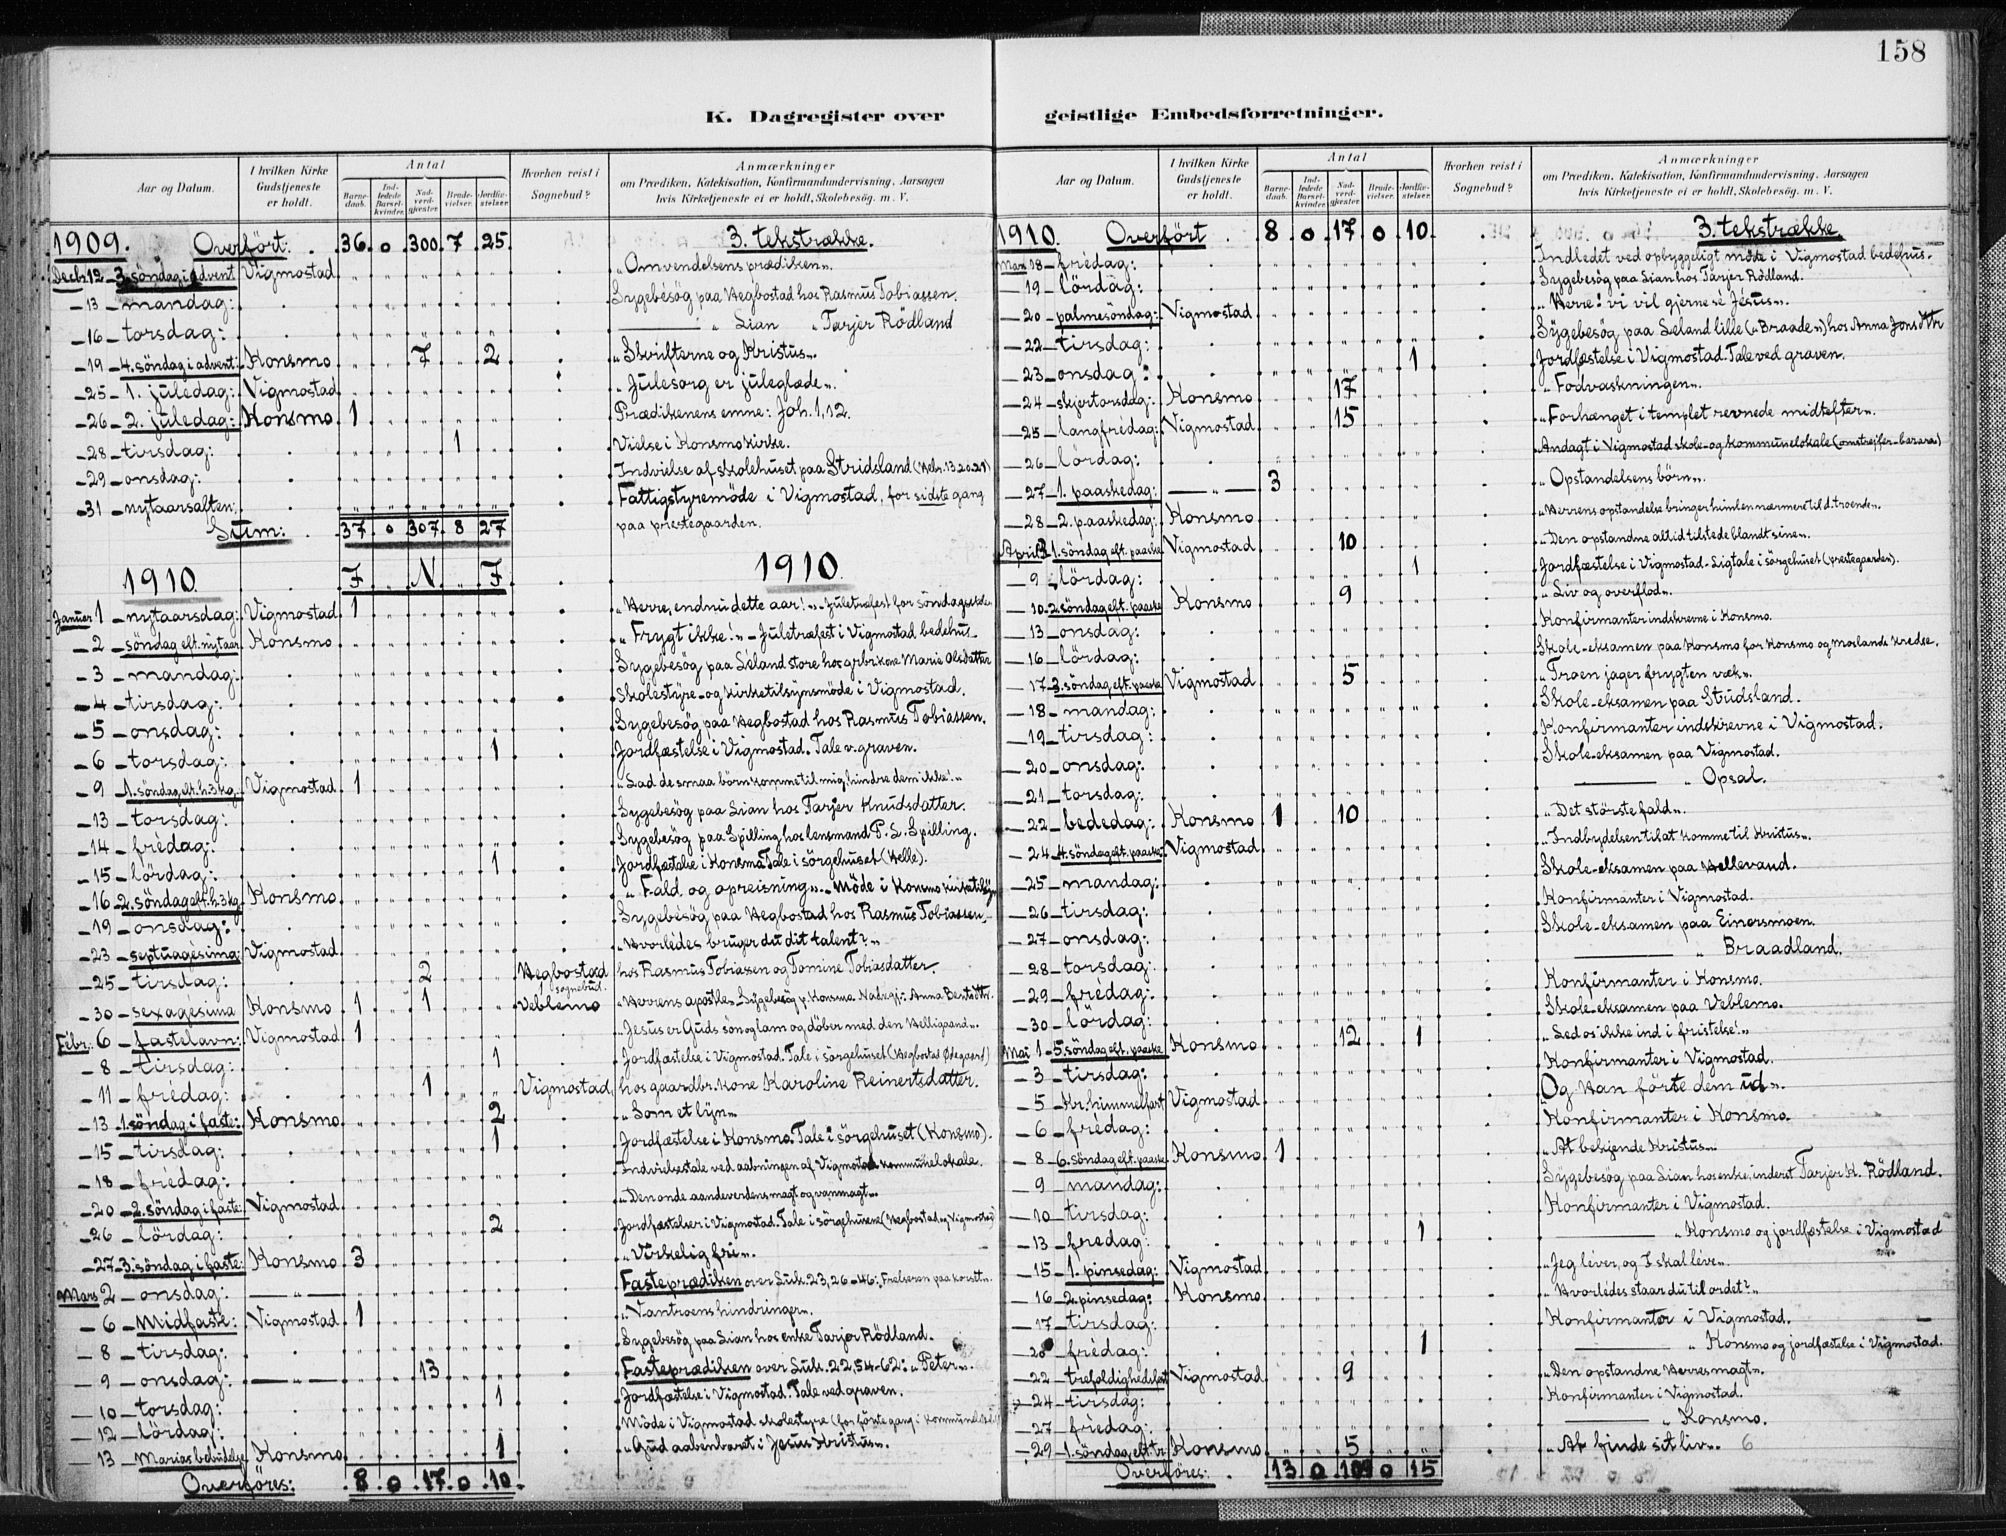 158
K. Dagregister over
Aar og Datum. I hvilken Kirke Gudstjeneste er holdt. Antal Barne-daab. Ind-ledede Barsel-kvinder. Nad-verd-gjester. Brude-vielser. Jordfæ-stelser. Hvorhen reist i Sognebud? Anmærkninger om Prædiken, Katekisation, Konfirmandundervisning, Aarsagen hvis Kirketjeneste ei er holdt, Skolebesøg. m. V.
1909. Overført: 36. 0 300. 7 25. 3. tekstrække.
Decbr. 12 - 3. søndag i advent Vigmostad "Omvendelsens prædiken".
- 13 - mandag: Sygebesøg paa Hegbostad hos Rasmus Tobiassen.
- 16 - torsdag: " Lian " Tarjer Rødland
- 19 - 4. søndag i advent: Konsmo 7 2 "Skrifterne og Kristus".
- 25 - 1. juledag: Vigmostad "Julesorg er juleglæde".
- 26 - 2. juledag: Konsmo 1 Prædikenens emne: Joh. 1, 12.
- 28 - tirsdag: 1 Vielse i Konsmo kirke.
- 29 - onsdag: Indvielse af skolehuset paa Stridsland (Hebr. 13. 20. 21)
- 31 - nytaarsaften: Fattigstyremöde i Vigmostad, for sidste gang
Sum: 37. 0 307. 8 27 paa prestegaarden.
1910. 7 N. 7 1910.
Januar 1 - nytaarsdag: Vigmostad 1 "Herre, endnu dette aar!" - Juletræfest for søndagsskolen
- 2 - søndag eft. nytaar Konsmo "Frygt ikke!" - Juletræfest i Vigmostad bedehus.
- 3 - mandag: Sygebesøg paa Séland store hos grbr. kone Marie Olsdatter
- 4 - tirsdag: Skolestyre- og kirketilsynsmöde i Vigmostad.
- 5 - onsdag: Sygebesøg paa Hegbostad hos Rasmus Tobiassen.
- 6 - torsdag: 1 Jordfæstelse i Vigmostad. Tale v. graven.
- 9 - 1. søndag eft. h. 3 kg. Vigmostad 1 "Lad de smaa børn komme til mig, hindre dem ikke!"
- 13 - torsdag: Sygebesøg paa Lian hos Tarjer Knudsdatter.
- 14 - frédag: Sygebesøg paa Spilling hos lensmand P. S. Spilling.
- 15 - lördag: 1 Jordfæstelse i Konsmo. Tale i sörgehuset (Helle).
- 16 - 2. søndag eft. h. 3 kg. Konsmo "Fald og opreisning". - Möde i Konsmo kirketilsyn
- 19 - onsdag: Sygebesøg paa Hegbostad hos Rasmus Tobiassen.
- 23 - septuagésima: Vigmostad "Hvorlédes bruger du dit talent?"
- 25 - tirsdag: 2 Hegbostad hos Rasmus Tobiassen og Tomine Tobiasdatter.
- 30 - sexagésima Konsmo 1 1 sognebud. Veblemo "Herrens apostle". Sygebesøg p. Konsmo. Nadvgj.: Anna Bentsdtr.
Febr.: 6 - fastelavn: Vigmostad 1 Jesus er Guds sön og lam og döber med den Helligaand".
- 8 - tirsdag: 1 Jordfæstelse i Vigmostad. Tale i sörgehuset (Hegbostad Ødegaard)
- 11 - frédag: 1 Vigmostad, hos gaardbr. kone Karoline Reinertsdatter.
- 13 - 1. søndag i faste: Konsmo 2 "Som et lyn"
- 15 - tirsdag: 1 Jordfæstelse i Konsmo. Tale i sörgehuset (Konsmo).
- 18 - frédag: Indvielsestale ved aabningen af Vigmostad kommunelokale.
- 20 - 2. søndag i faste: Vigmostad "Den onde aandeverdens magt og vanmagt".
- 26 - lördag: 2 Jordfæstelser i Vigmostad. Tale i sörgehusene (Hegbostad og Vigmostad)
- 27 - 3. søndag i faste: Konsmo 3 "Virkelig fri".
Mars 2 - onsdag: — " — Fasteprædiken over Luk. 23, 26-46: Frelseren paa korset".
- 6 - Midfaste: Vigmostad 1 "Vantroens hindringer".
- 8 - tirsdag: Sygebesøg paa Lian hos enke Tarjer Rödland.
- 9 - onsdag: — " — 13 Fasteprædiken over Luk. 22, 54-62: "Peter".
- 10 - torsdag: 1 Jordfæstelse i Vigmostad. Tale ved graven.
- 12 - lördag: Möde i Vigmostad skolestyre (for förste gang i kommunelokalet)
- 13 - Marias bebudelse Konsmo 1 "Gud aabenbaret i Jesus Kristus".
Overføres: 8 0 17. 0 10.
geistlige Embedsforretninger.
Aar og Datum. I hvilken Kirke Gudstjeneste er holdt. Antal Barne-daab. Ind-ledede Barsel-kvinder. Nad-verd-gjester. Brude-vielser. Jordfæ-stelser. Hvorhen reist i Sognebud? Anmærkninger om Prædiken, Katekisation, Konfirmandundervisning, Aarsagen hvis Kirketjeneste ei er holdt, Skolebesøg. m. V.
1910. Overført 8 0 17 0 10. 3. tekstrække.
Mars 18 - frédag: Indledet ved opbyggeligt möde i Vigmostad bedehus.
- 19 - lördag: Sygebesøg paa Lian hos Tarjer Rödland.
- 20 - palmesöndag: Vigmostad "Herre! vi vil gjerne sé Jésus".
- 22 - tirsdag: Sygebesøg paa Séland lille ("Braade") hos Anna Jonsdtr
- 23 - onsdag: 1 Jordfæstelse i Vigmostad. Tale ved graven.
- 24 - skjertorsdag: Konsmo 17 "Fodvaskningen".
- 25 - langfrédag: Vigmostad 15 "Forhænget i templet revnede midtefter".
- 26 - lördag: Andagt i Vigmostad skole- og kommunelokale
- 27 - 1. paaskedag: — " — 3 "Opstandelsens börn".
- 28 - 2. paaskedag: Konsmo "Herrens opstandelse bringer himlen nærmere til d. troende".
April 3 1. söndag eft. paaske Vigmostad 10 "Den opstandne altid tilstede blandt sine".
- 9 - lördag: 1 Jordfæstelse i Vigmostad - Ligtale i sörgehuset (prestegaarden).
- 10 - 2. söndag eft. paaske Konsmo 9 "Liv og overflod".
- 13 - onsdag: Konfirmanter indskrevne i Konsmo.
- 16 - lördag: Skole-eksamen paa Konsmo for Konsmo og Moslands kredse.
- 17 - 3. söndag eft. paaske Vigmostad 5 "Troen jager frygten væk".
- 18 - mandag: Skole-eksamen paa Strudsland.
- 19 - tirsdag: Konfirmanter indskrevne i Vigmostad.
- 20 - onsdag: Skole-eksamen paa Vigmostad.
- 21 - torsdag: — " Opsal.
- 22 - bededag: Konsmo 1 10 "Det störste fald".
- 24 - 4. söndag eft. paaske: Vigmostad "Indbydelsen til at komme til Kristus".
- 25 - mandag: Skole-eksamen paa Hellevand.
- 26 - tirsdag: Konfirmanter i Vigmostad.
- 27 - onsdag: Skole-eksamen paa Einersmoen.
- 28 - torsdag: — " Braadland.
- 29 - frédag: Konfirmanter i Konsmo.
- 30 - lördag: Skole-eksamen paa Veblemo.
Mai 1 - 5. söndag eft. paaske Konsmo 12 1 "Led os ikke ind i fristelse!"
- 3 - tirsdag: Konfirmanter i Vigmostad.
- 5 - Kr. himmelfart Vigmostad "Og Han förte dem ud".
- 6 - frédag: Konfirmanter i Konsmo.
- 8 - 6. söndag eft. paaske Konsmo 1 "At bekjende Kristus".
- 9 - mandag: Sygebesøg paa Lian hos enke, inderst Tarjer K. Rödland.
- 10 - tirsdag: Konfirmanter i Vigmostad.
- 13 - fredag: 1 — " Konsmo og jordfæstelse i Vigmostad
- 15 - 1. pinsedag: Vigmostad "Jeg lever, og I skal leve".
- 16 - 2. pinsedag: Konsmo "Hvorledes staar du til ordet?"
- 17 - tirsdag: Konfirmanter i Vigmostad.
- 20 - frédag: 1 — " Konsmo og jordfæstelse i Vigmostad.
- 22 - trefoldighedsfest Vigmostad 9 "Den opstandne Herres magt".
- 24 - tirsdag: Konfirmanter i Vigmostad.
- 27 - frédag: — " Konsmo.
- 29 - 1. söndag eft. tr. Konsmo 5 "At finde sit liv". 6
Overføres: 13 0 109 0 15